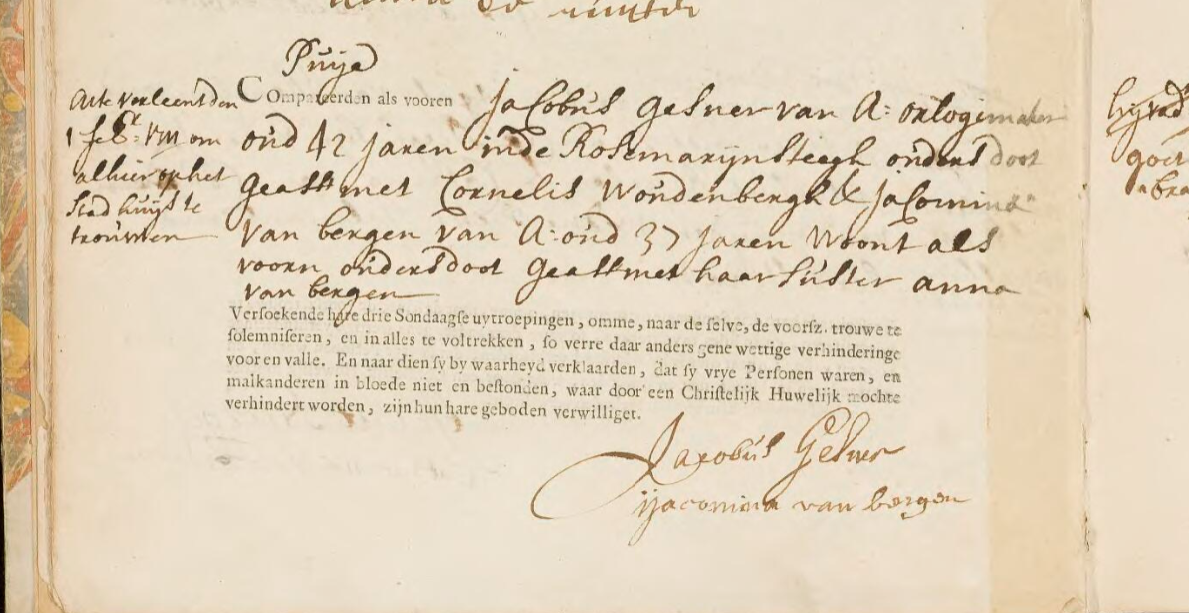 Puije
Acte verleent den
1 feb:r 1711 om
alhier op het
Stadhuijs te
trouwen
Compareerden als vooren Jacobus Gesner van A: orlogimaker
oud 42 jaren inde Rosemarijnsteegh ouders doot
geast met Cornelis Woudenbergh & Jacomina
van bergen van A: oud 37 jaren Woont als
voorn ouders doot geast met haar suster anna
van bergen
Versoekende hare drie Sondaagse uytroepingen, omme, naar de selve, de voorsz. trouwe te
solemniseren, en in alles te voltrekken, so verre daar anders gene wettige verhinderinge
voor en valle. En naar dien sy by waarheyd verklaarden, dat sy vrye Personen waren, en
malkanderen in bloede niet en bestonden, waar door een Christelijk Huwelijk mochte
verhindert worden, zijn hun hare geboden verwilliget.
Jacobus Gesner
ijaconima van bergen